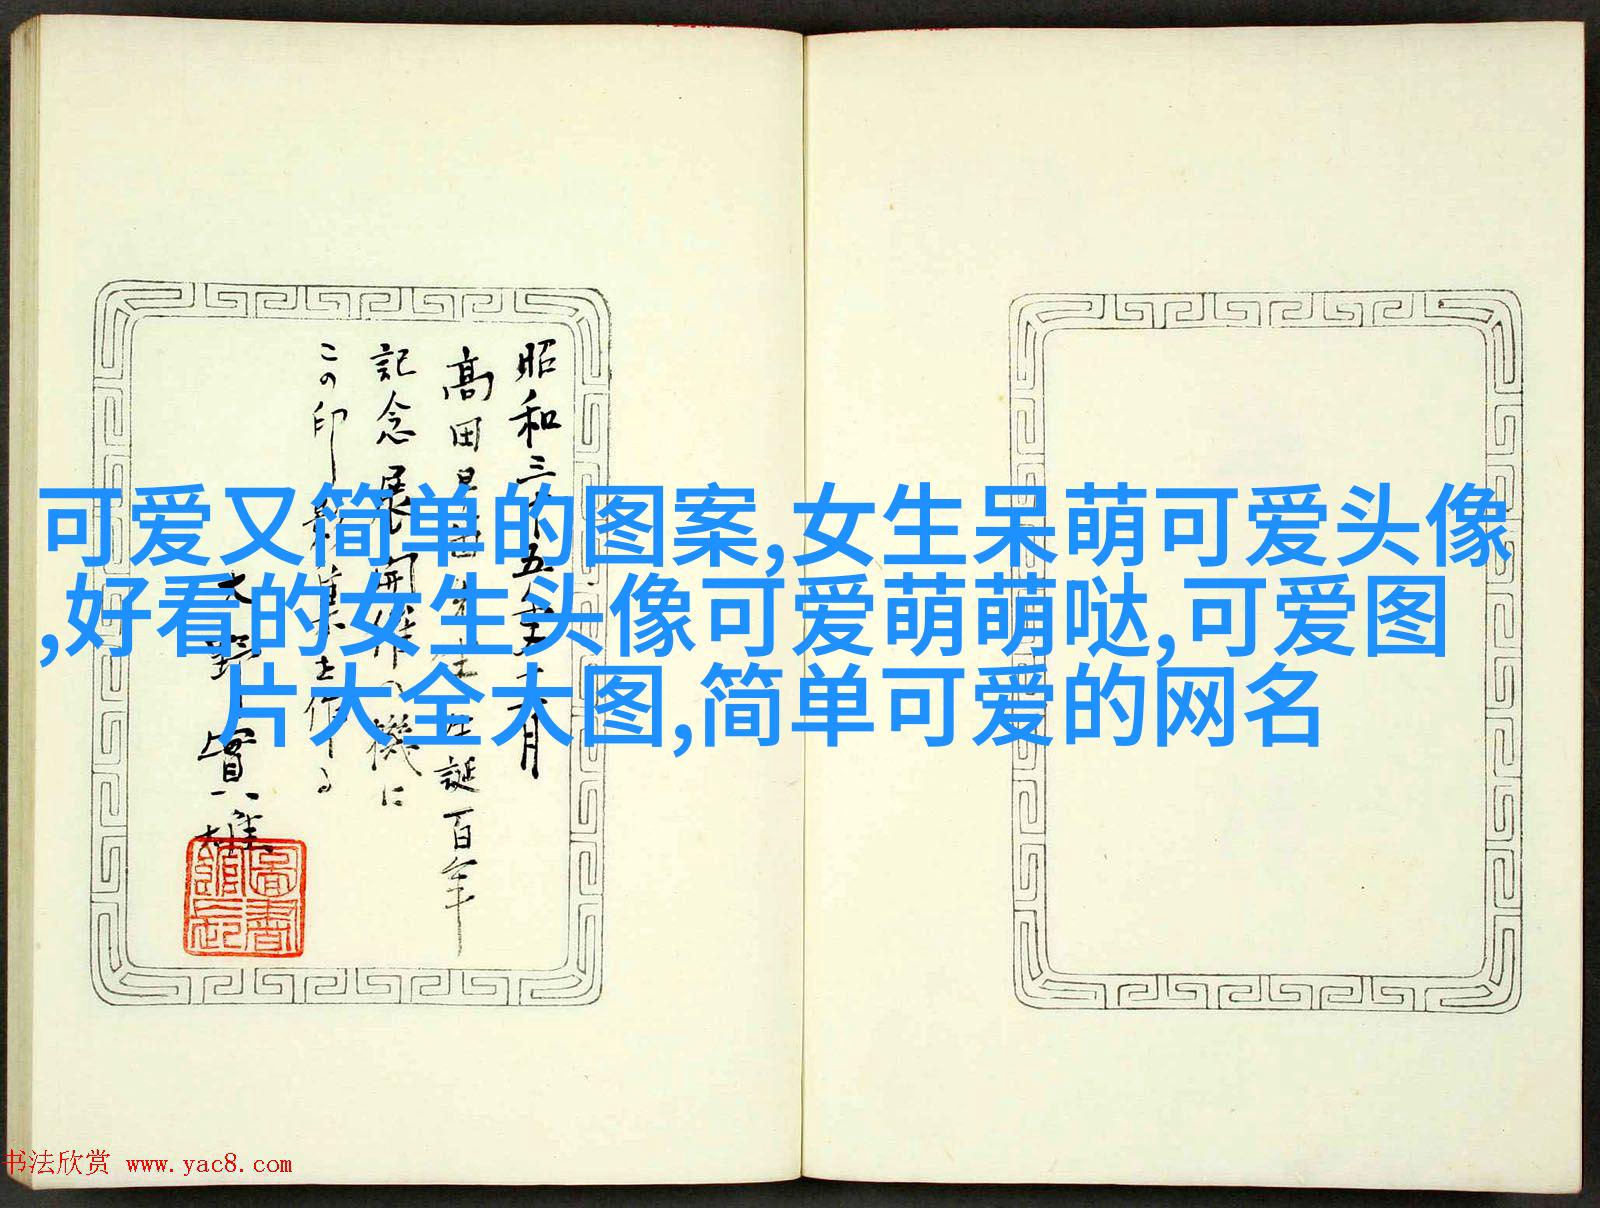 可爱又简单的图案,女生呆萌可爱头像
,好看的女生头像可爱萌萌哒,可爱图
片大全大图,简单可爱的网名
昭和三十五年三月
高田早苗先生生誕百年
記念展開催の機に
この印
作る
大野實雄
圖書館長
书法欣赏 www.yac8.com